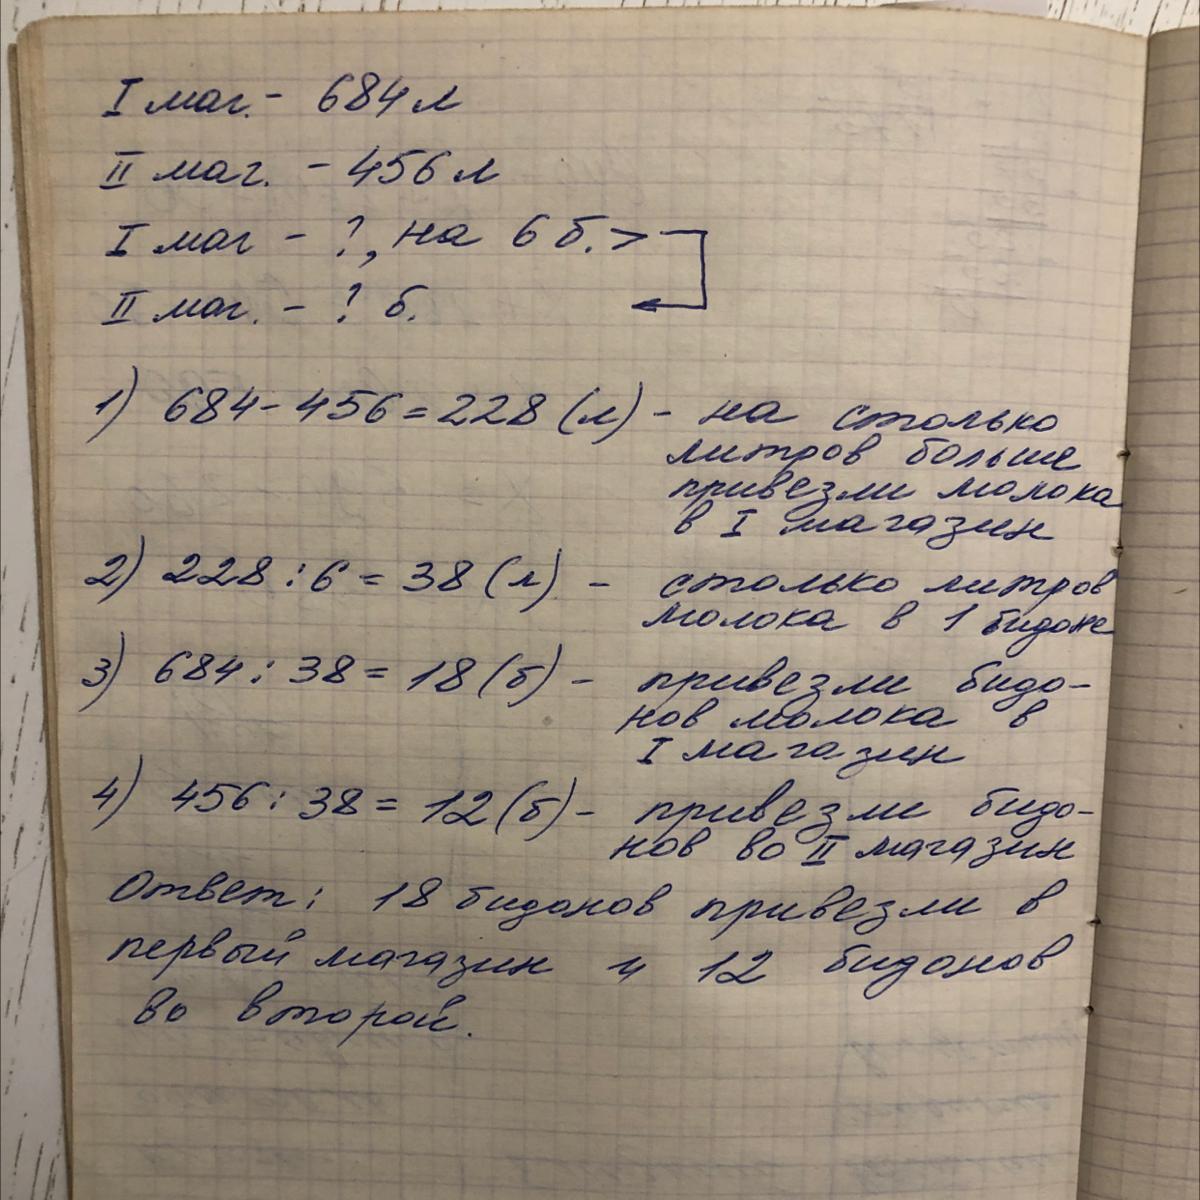 I маг. - 684 л
II маг. - 456 л
I маг - ?, на 6 б. >
II маг. - ? б.
1) 684 - 456 = 228 (л) - на столько
литров больше
привезли молока
в I магазин
2) 228 : 6 = 38 (л) - столько литров
молока в 1 бидоне
3) 684 : 38 = 18 (б) - привезли бидо-
нов молока в
I магазин
4) 456 : 38 = 12 (б) - привезли бидо-
нов во II магазин
Ответ: 18 бидонов привезли в
первый магазин и 12 бидонов
во второй.